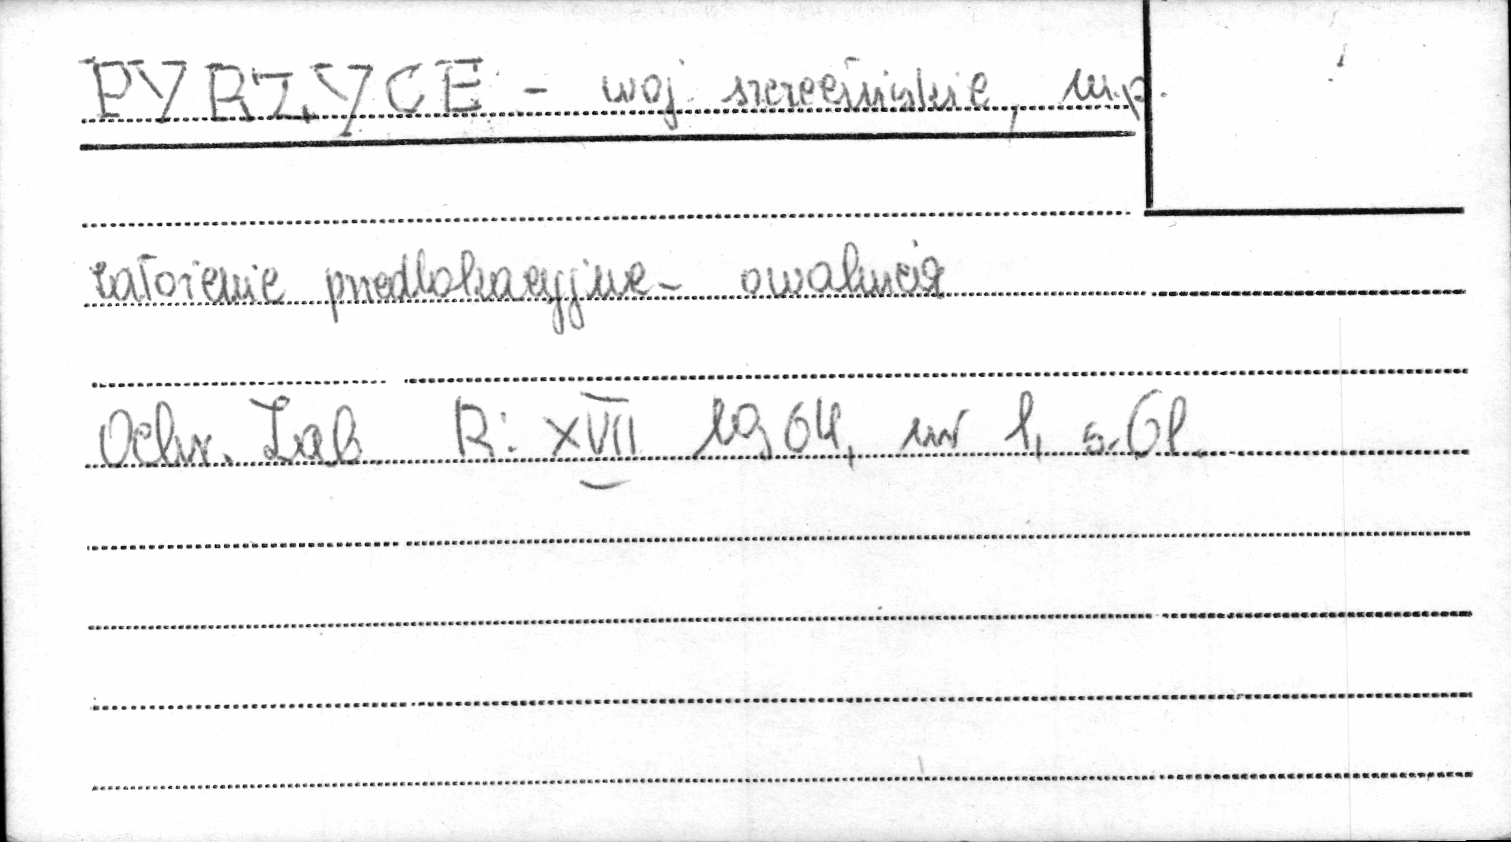 PYRZYCE - woj. szczecińskie, m.p.
założenie przedlokacyjne - owalnica
Ochr. Zab. R: XVII 1964, nr 1, s. 61.